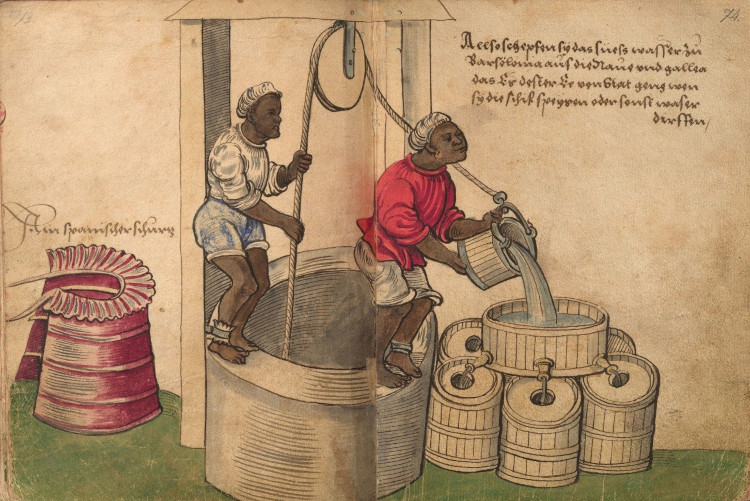 74
Allso schepfen sy das suess wasser zu
Barsoloma auf die Naue vnd gallea
das Er dester Er von stat geng wen
sy die schif speysen oder sonst waser
derffen
Ain spanischer schurtz